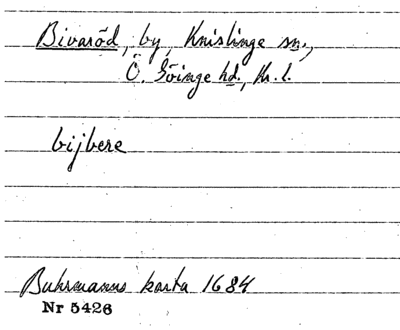 Bivaröd, by, Knislinge sn.,
Ö. Göinge hd., Kr. l.
bijbere
Buhrmanns karta 1684
Nr 5426